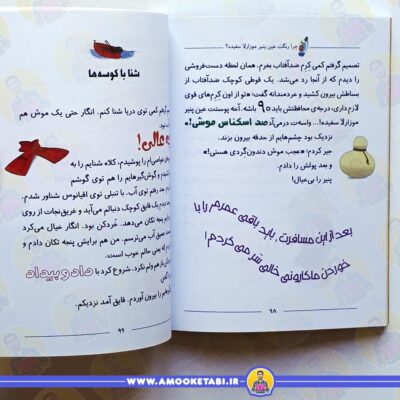 چرا رنگت عین پنیر موزارلا سفیده؟
تصمیم گرفتم کمی کِرِم ضدآفتاب بخرم. همان لحظه دست‌فروشی
را دیدم که از آنجا رد می‌شد. یک قوطی کوچک ضدآفتاب از
بساطش بیرون کشید و خردمندانه گفت: «تو از اون کِرِم‌های قوی
لازم داری، درجه‌ی محافظتش باید ۹۰ باشه. آخه پوستت عین پنیر
موزارلا سفیده!... واسه‌ت درمی‌آد صد اسکناس موشی!»
نزدیک بود چشم‌هایم از حدقه بیرون بزند.
جیر کردم: «عجب موش دندون‌گردی هستی!»
و بعد پولش را دادم.
پنیر را بی‌خیال!
بعد از این مسافرت، باید باقی عمرم را با
خوردن ماکارونی خالی سَر می‌کردم!
۹۸
شنا با کوسه‌ها
کمی توی دریا شنا کنم. انگار حتی یک موش هم
عالی!
پوشیدم، کلاه شنایم را به
و گوش‌گیرهایم را هم توی گوشم
رفتم توی آب. با تنبلی توی اقیانوس شناور شدم.
یک قایق کوچک دنبالم می‌آید و غریق‌نجات از روی
پنجه تکان می‌دهد. خُردکن بود. انگار خیال می‌کرد
عمیق آب می‌ترسم. من هم برایش پنجه تکان دادم و
که یعنی حالم خوب است.
هم ولم نکرد. شروع کرد با داد و بیداد
بیرون آوردم. قایق آمد نزدیکم.
۹۹
WWW.AMOOKETABI.IR